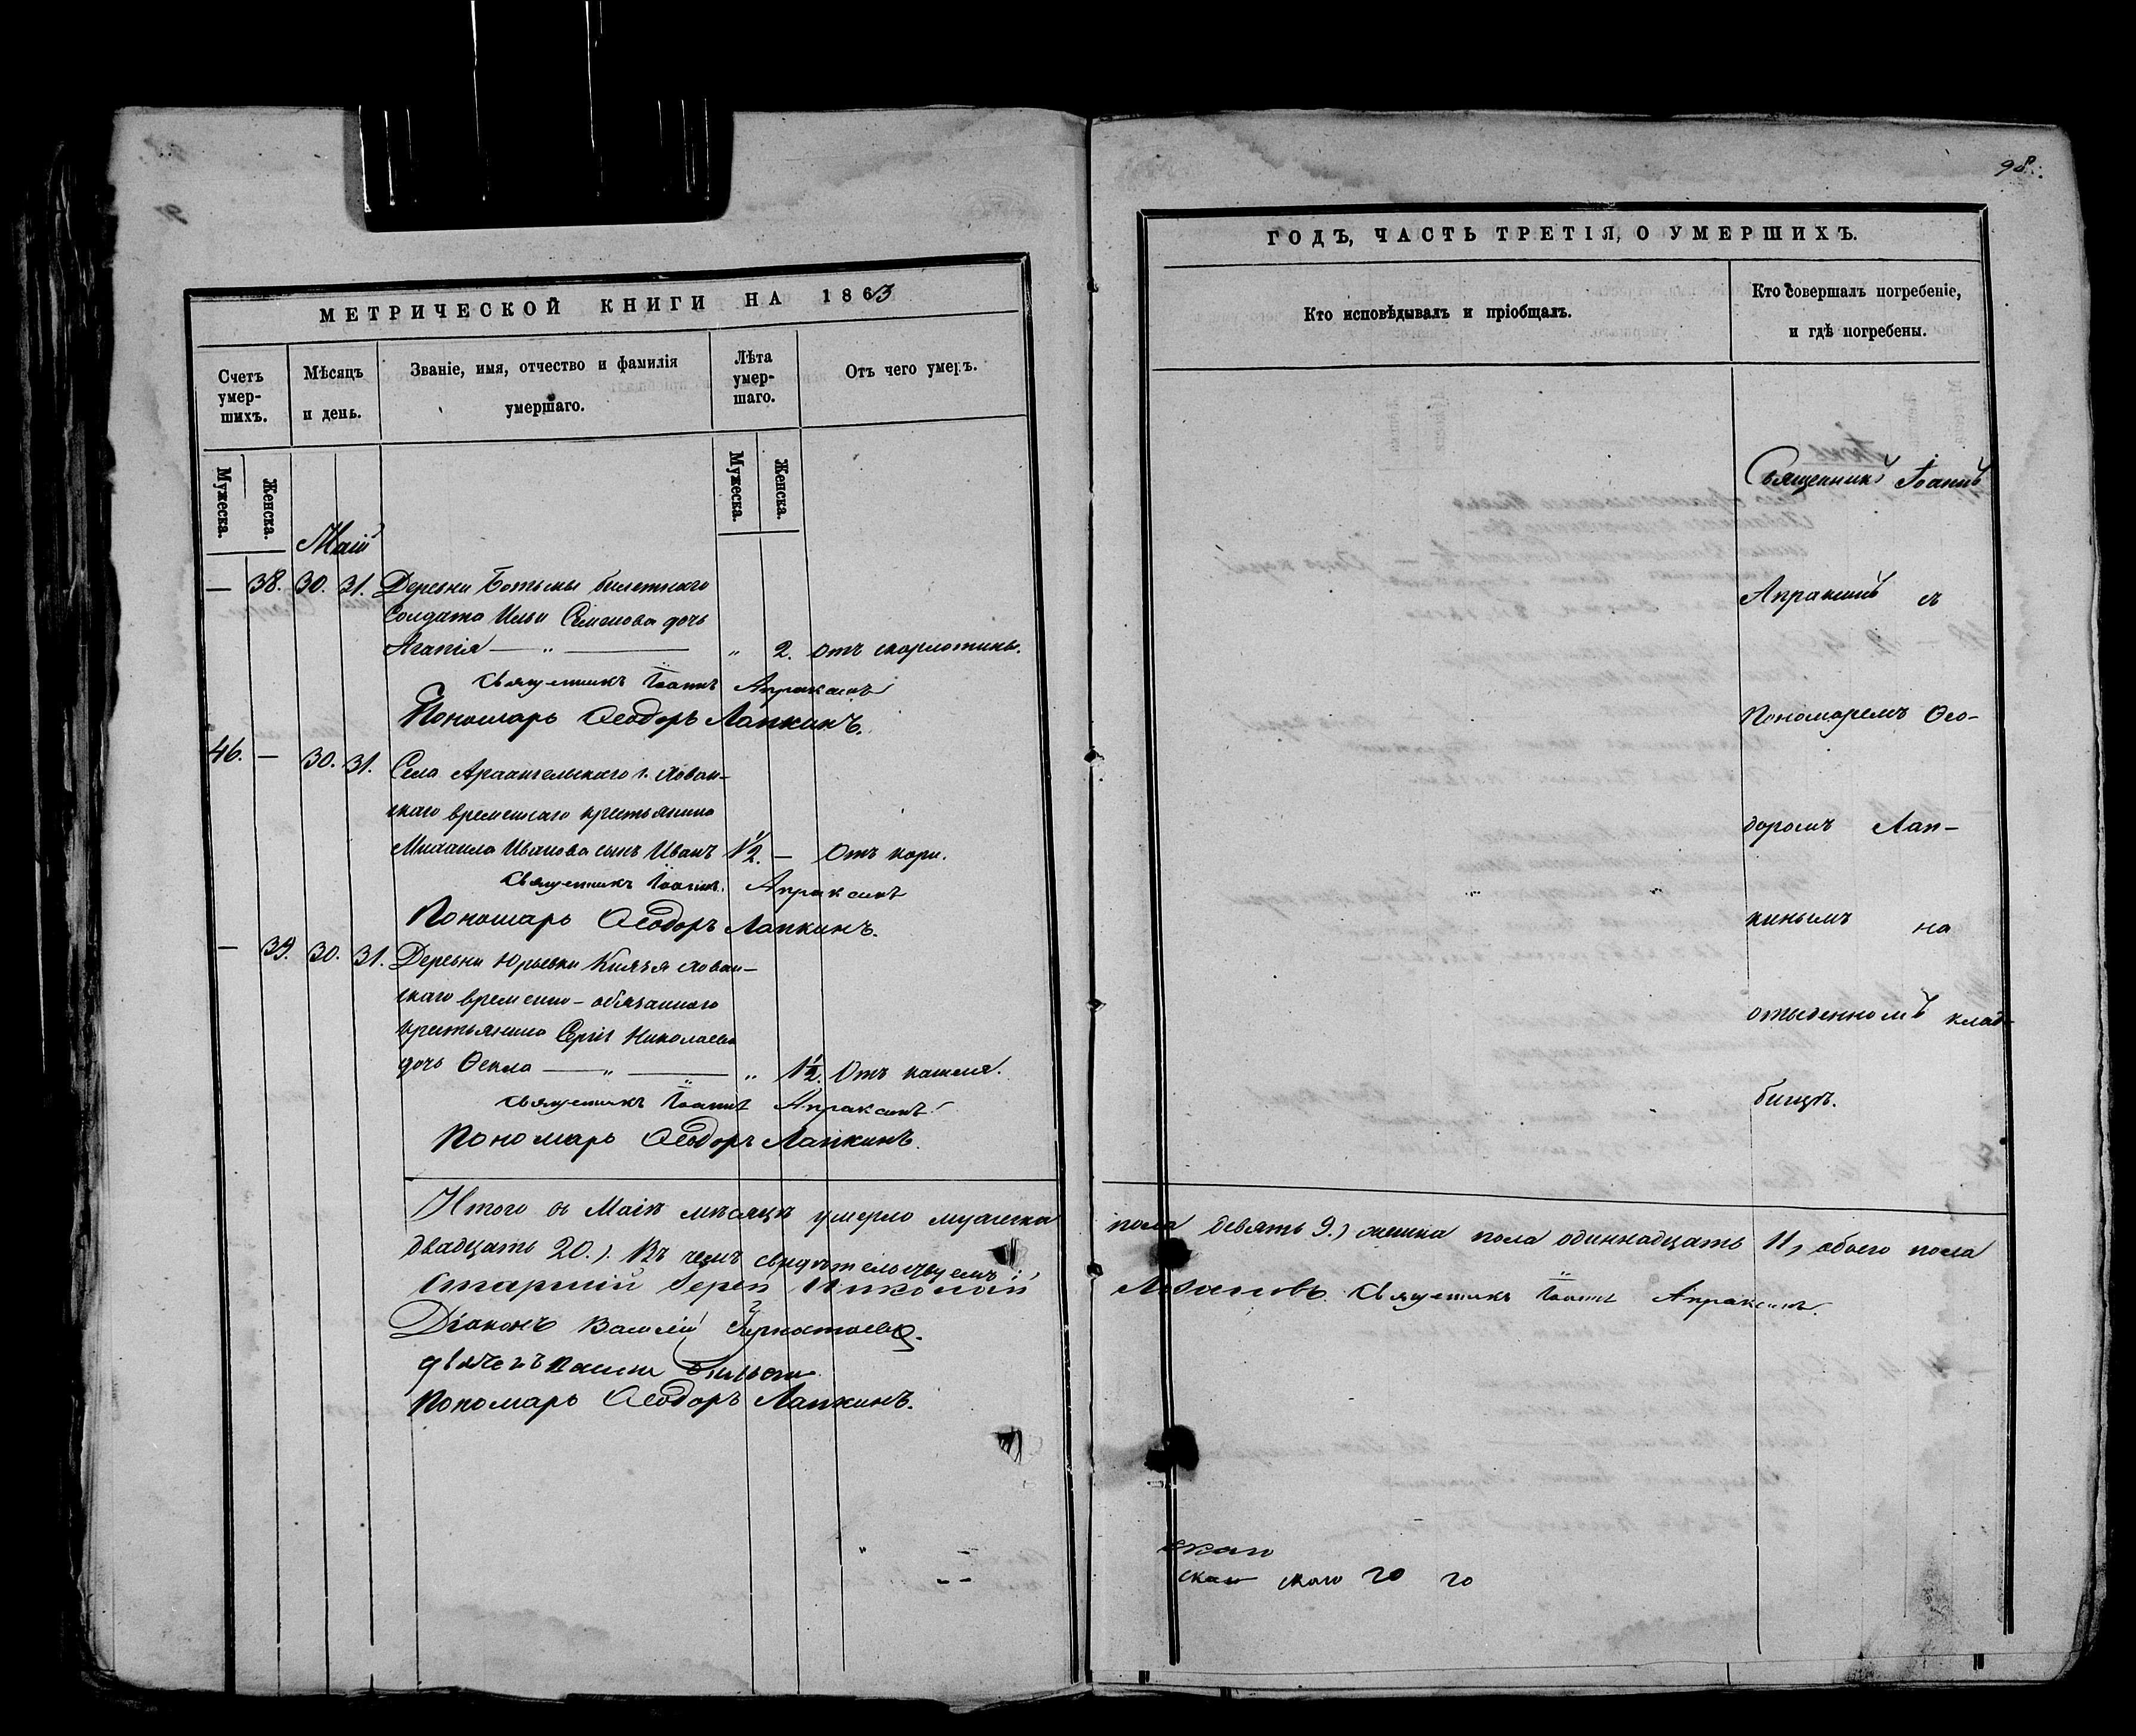 98.
МЕТРИЧЕСКОЙ КНИГИ НА 1863
Счетъ умер-шихъ.
Мѣсяцъ и день.
Званіе, имя, отчество и фамилія умершаго.
Лѣта умер-шаго.
Отъ чего умеръ.
Мужеска.
Женска.
Мужеска.
Женска.
Маій
— 38. 30. 31. Деревни билетнаго
Солдата Ильи Семенова дочь
Агапія — „ — „ 2. Отъ скорлотины.
Священникъ Іоаннъ Апраксинъ
Пономарь Ѳеодоръ Лапкинъ.
46. — 30. 31. Села Архангельскаго г. Хован-
скаго временнаго крестьянина
Михаила Иванова сынъ Иванъ 1½. — Отъ кори.
Священникъ Іоаннъ Апраксинъ
Пономарь Ѳеодоръ Лапкинъ.
— 39. 30. 31. Деревни Юрьевки Князя Хован-
скаго временно-обязаннаго
крестьянина Сергія Николаева
дочь Ѳекла — „ — „ 1½. Отъ кашля.
Священникъ Іоаннъ Апраксинъ
Пономарь Ѳеодоръ Лапкинъ.
Итого въ Маіѣ мѣсяцѣ умерло мужеска
двадцать 20.). Въ чемъ свидѣтельствуемъ:
Старшій Іерей Николай
Діаконъ Василій
Пономарь Ѳеодоръ Лапкинъ.
ГОДЪ, ЧАСТЬ ТРЕТІЯ, О УМЕРШИХЪ.
Кто исповѣдывалъ и пріобщалъ.
Кто совершалъ погребеніе,
и гдѣ погребены.
Священникъ Іоаннъ
Апраксинъ съ
Пономаремъ Ѳео-
доромъ Лап-
кинымъ на
отведенномъ клад-
бищѣ.
пола девять 9.) женска пола одиннадцать 11, обоего пола
Священникъ Іоаннъ Апраксинъ.
скаго
скаго скаго го го